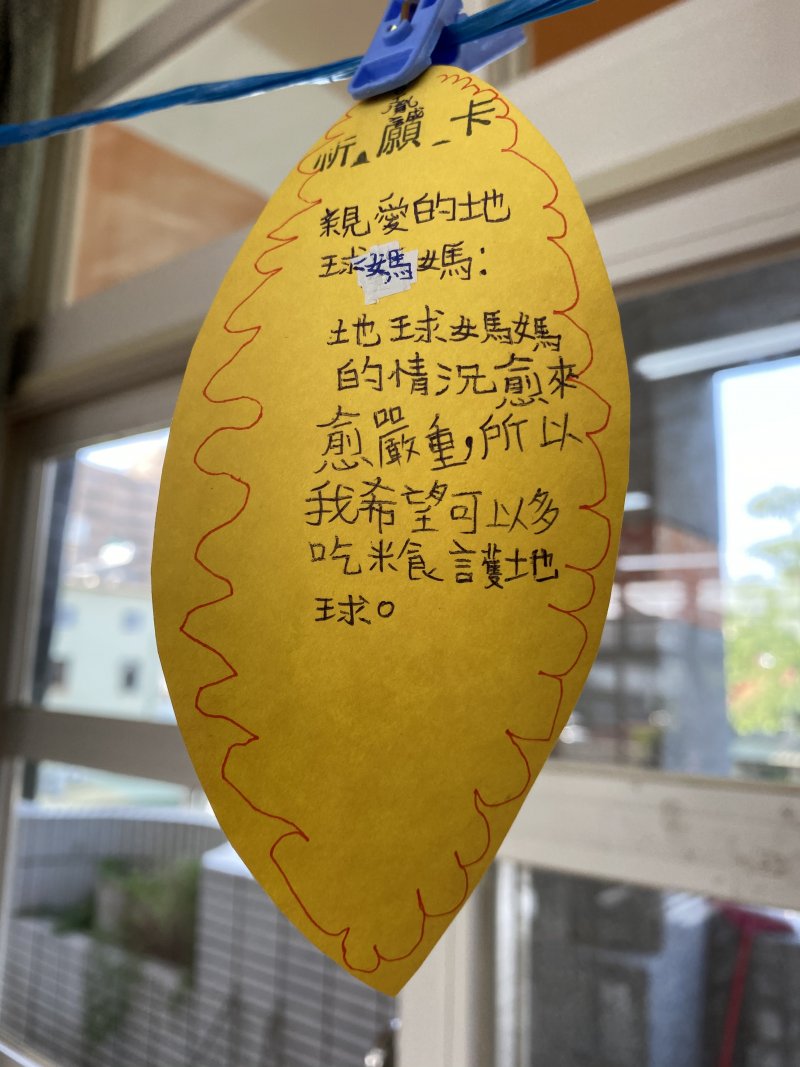 祈願卡
親愛的地
球媽媽：
地球媽媽
的情況愈來
愈嚴重，所以
我希望可以多
吃米食護地
球。